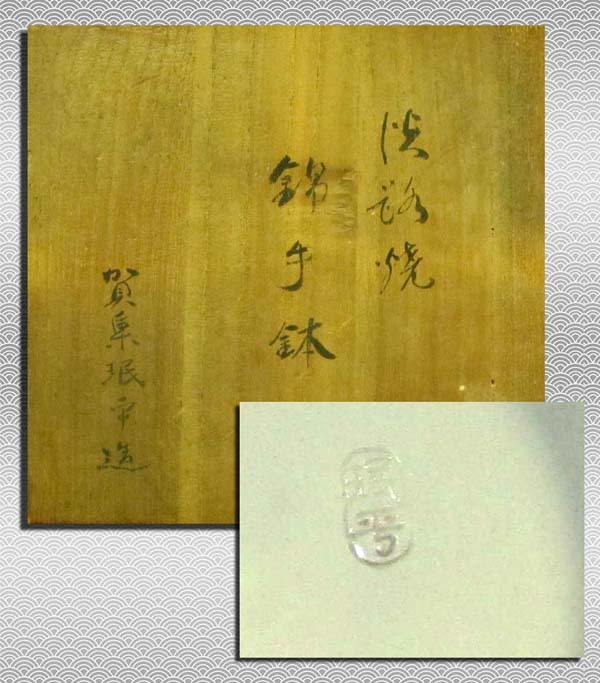 淡路焼
錦手鉢
賀集珉平造
珉平